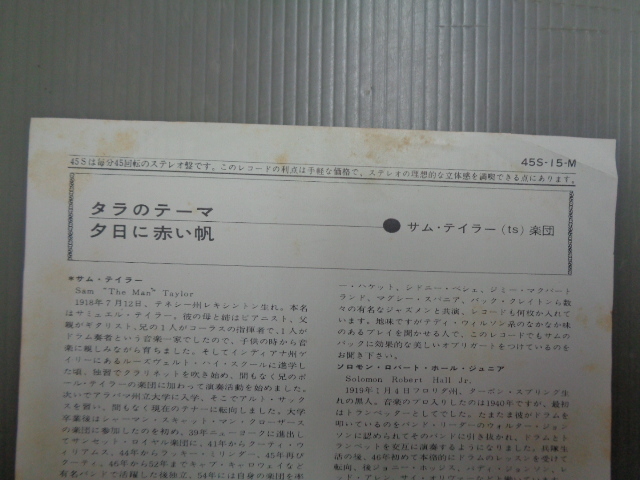 45S-15-M
45Sは毎分45回転のステレオ盤です。このレコードの利点は手軽な価格で、ステレオの理想的な立体感を満喫できる点にあります。
タラのテーマ
夕日に赤い帆
●サム・テイラー(ts)楽団
*サム・テイラー
Sam "The Man" Taylor
1918年7月12日、テネシー州レキシントン生れ。本名
はサミュエル・テイラー、彼の母と姉はピアニスト、父
親がギタリスト、兄の1人がコーラスの指揮者で、1人が
ドラム奏者という音楽一家でしたので、子供の時から音
楽に親しみながら育ちました。そしてインディアナ州ゲ
イリーにあるルーズヴェルト・ハイ・スクールに進学し
た頃、独習でクラリネットを吹き始め、間もなく兄のポ
ール・テイラーの楽団に加わって演奏活動を始めました。
次いでアラバマ州立大学に入学、そこでアルト・サック
スを習い、間もなく現在のテナーに転向しました。大学
卒業後はシャーマン・スキート・マン・クローザース
の楽団に参加したのを初め、39年ニューヨークに進出し
てサンセット・ロイヤル楽団に、41年からクーティ・ウ
ィリアムス、44年からラッキー・ミリンダー、45年再び
クーティ、46年から52年までキャブ・キャロウェイなど
有名バンドで活躍した後独立、54年には自身の楽団を率
ー・ハケット、シドニー・ベシェ、ジミー・マクパート
ランド、マグシー・スパニア、バック・クレイトンら数
々の有名なジャズメンと共演、レコードも何枚か入れて
います。地味ですがテディ・ウィルソン系のなかなか味
のあるプレイを聞かせる人で、このレコードでもサムの
バックに効果的な美しいオブリガートをつけているのを
お聞き下さい。
ソロモン・ロバート・ホール・ジュニア
Solomon Robert Hall Jr.
1919年1月4日フロリダ州、ターポン・スプリング生
れの黒人。音楽のプロ入りしたのは1940年ですが、最初
はトランペッターとしてでした。たまたま彼がドラムを
叩いているのをバンド・リーダーのウォルター・ジョン
ソンに認められてそのバンドに引き抜かれ、ドラムとト
ランペットを交互に演奏するようになりました。兵隊生
活の後、46年初めて本格的にドラムのレッスンを受けて
転向、後ジョニー・ホッジス、バディ・ジョンソン、レ